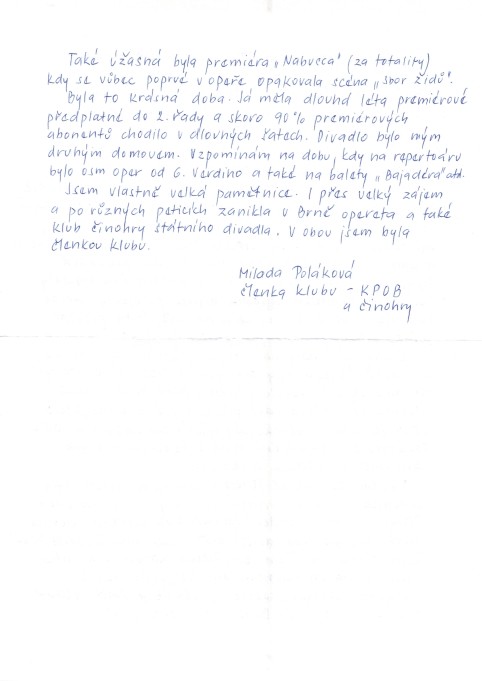 Také úžasná byla premiéra „Nabucca" (za totality)
kdy se vůbec poprvé v opeře opakovala scéna „sbor židů".
Byla to krásná doba. Já měla dlouhá léta premiérové
předplatné do 2. řady a skoro 90% premiérových
abonentů chodilo v dlouhých šatech. Divadlo bylo mým
druhým domovem. Vzpomínám na dobu, kdy na repertoáru
bylo osm oper od G. Verdiho a také na balety „Bajadéra" atd.
Jsem vlastně velká pamětnice. I přes velký zájem
a po různých peticích zanikla v Brně opereta a také
klub činohry státního divadla. V obou jsem byla
členkou klubu.
Milada Poláková
členka klubu – KPOB
a činohry